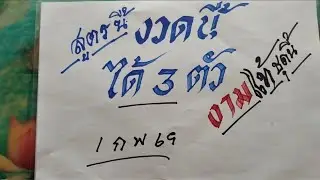 สูตรนี้
งวดนี้
ได้ 3 ตัว
งามเข้าชุดนี้
1 กพ 69